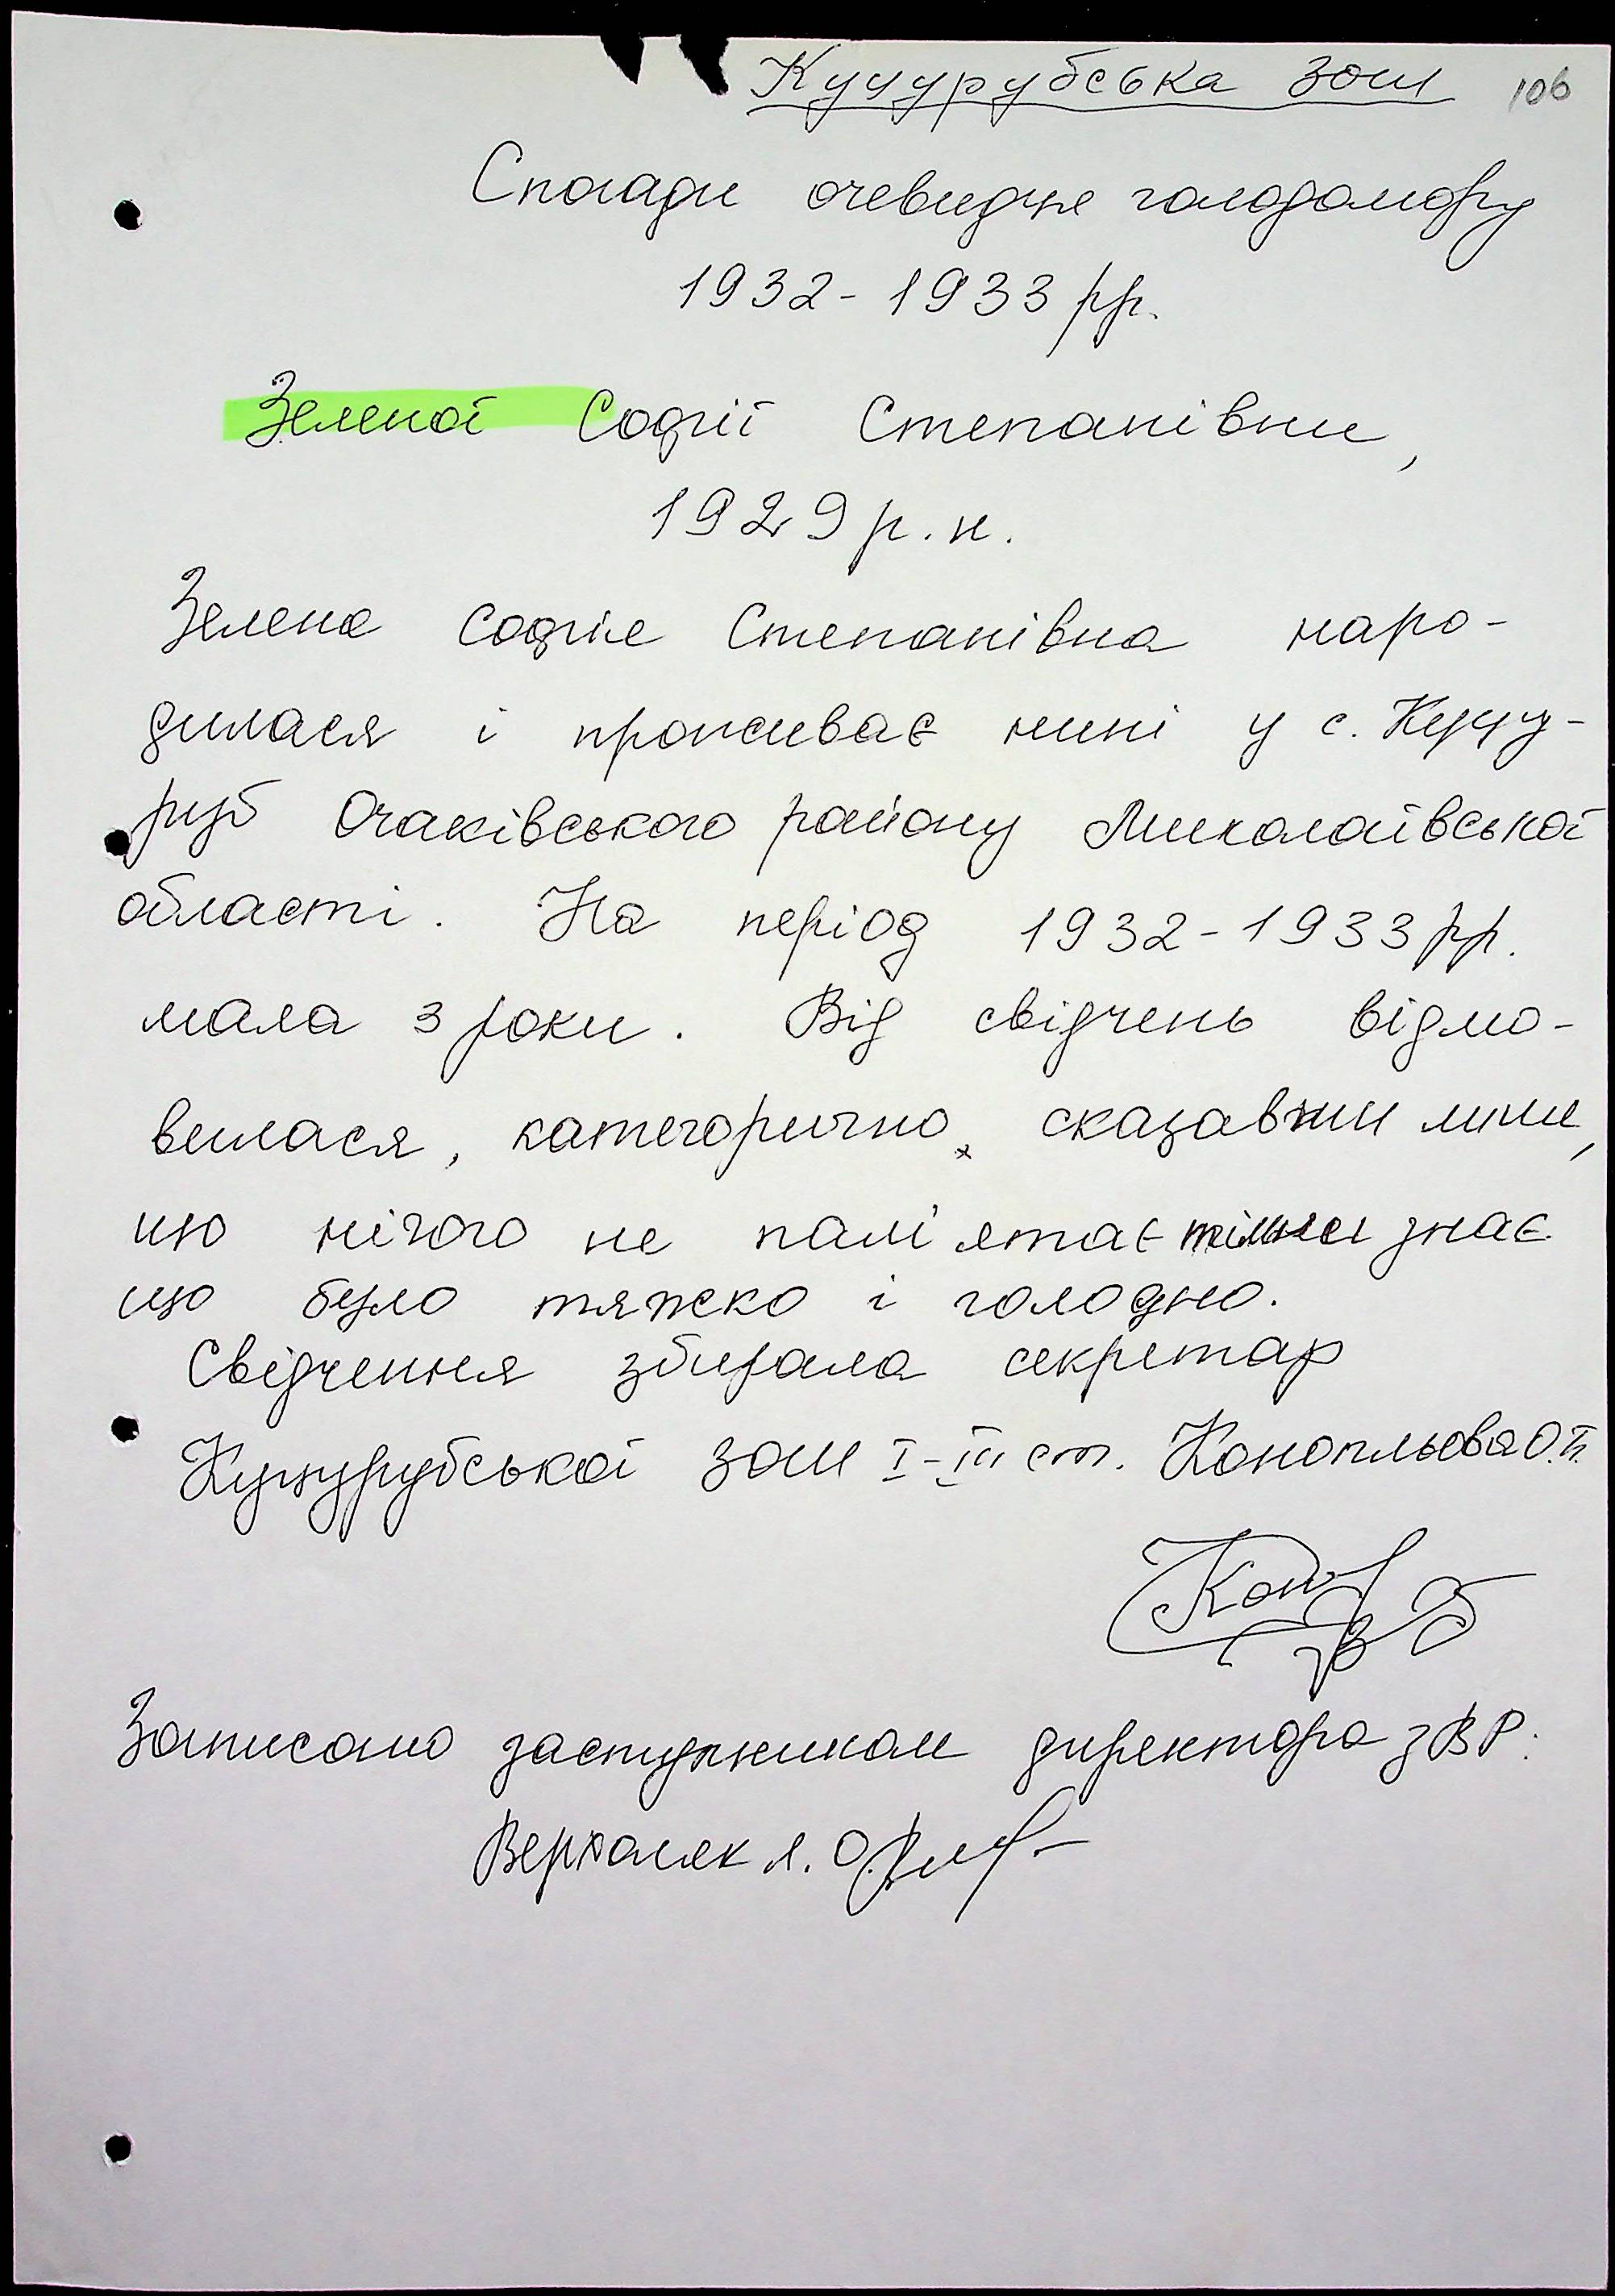 Куцурубська зош 106
Спогади очевидця голодомору
1932-1933 рр.
Зеленої Софії Степанівни,
1929 р. н.
Зелена Софія Степанівна наро-
дилася і проживає нині у с. Куцу-
руб Очаківського району Миколаївської
області. На період 1932-1933 рр.
мала 3 роки. Від свідчень відмо-
вилася, категорично, сказавши лише,
що нічого не пам'ятає тільки знає
що було тяжко і голодно.
Свідчення збирала секретар
Куцурубської зош І-ІІІ ст. Конопльова О.П.
Записано заступником директора з ВР:
Верхоляк Я. О.